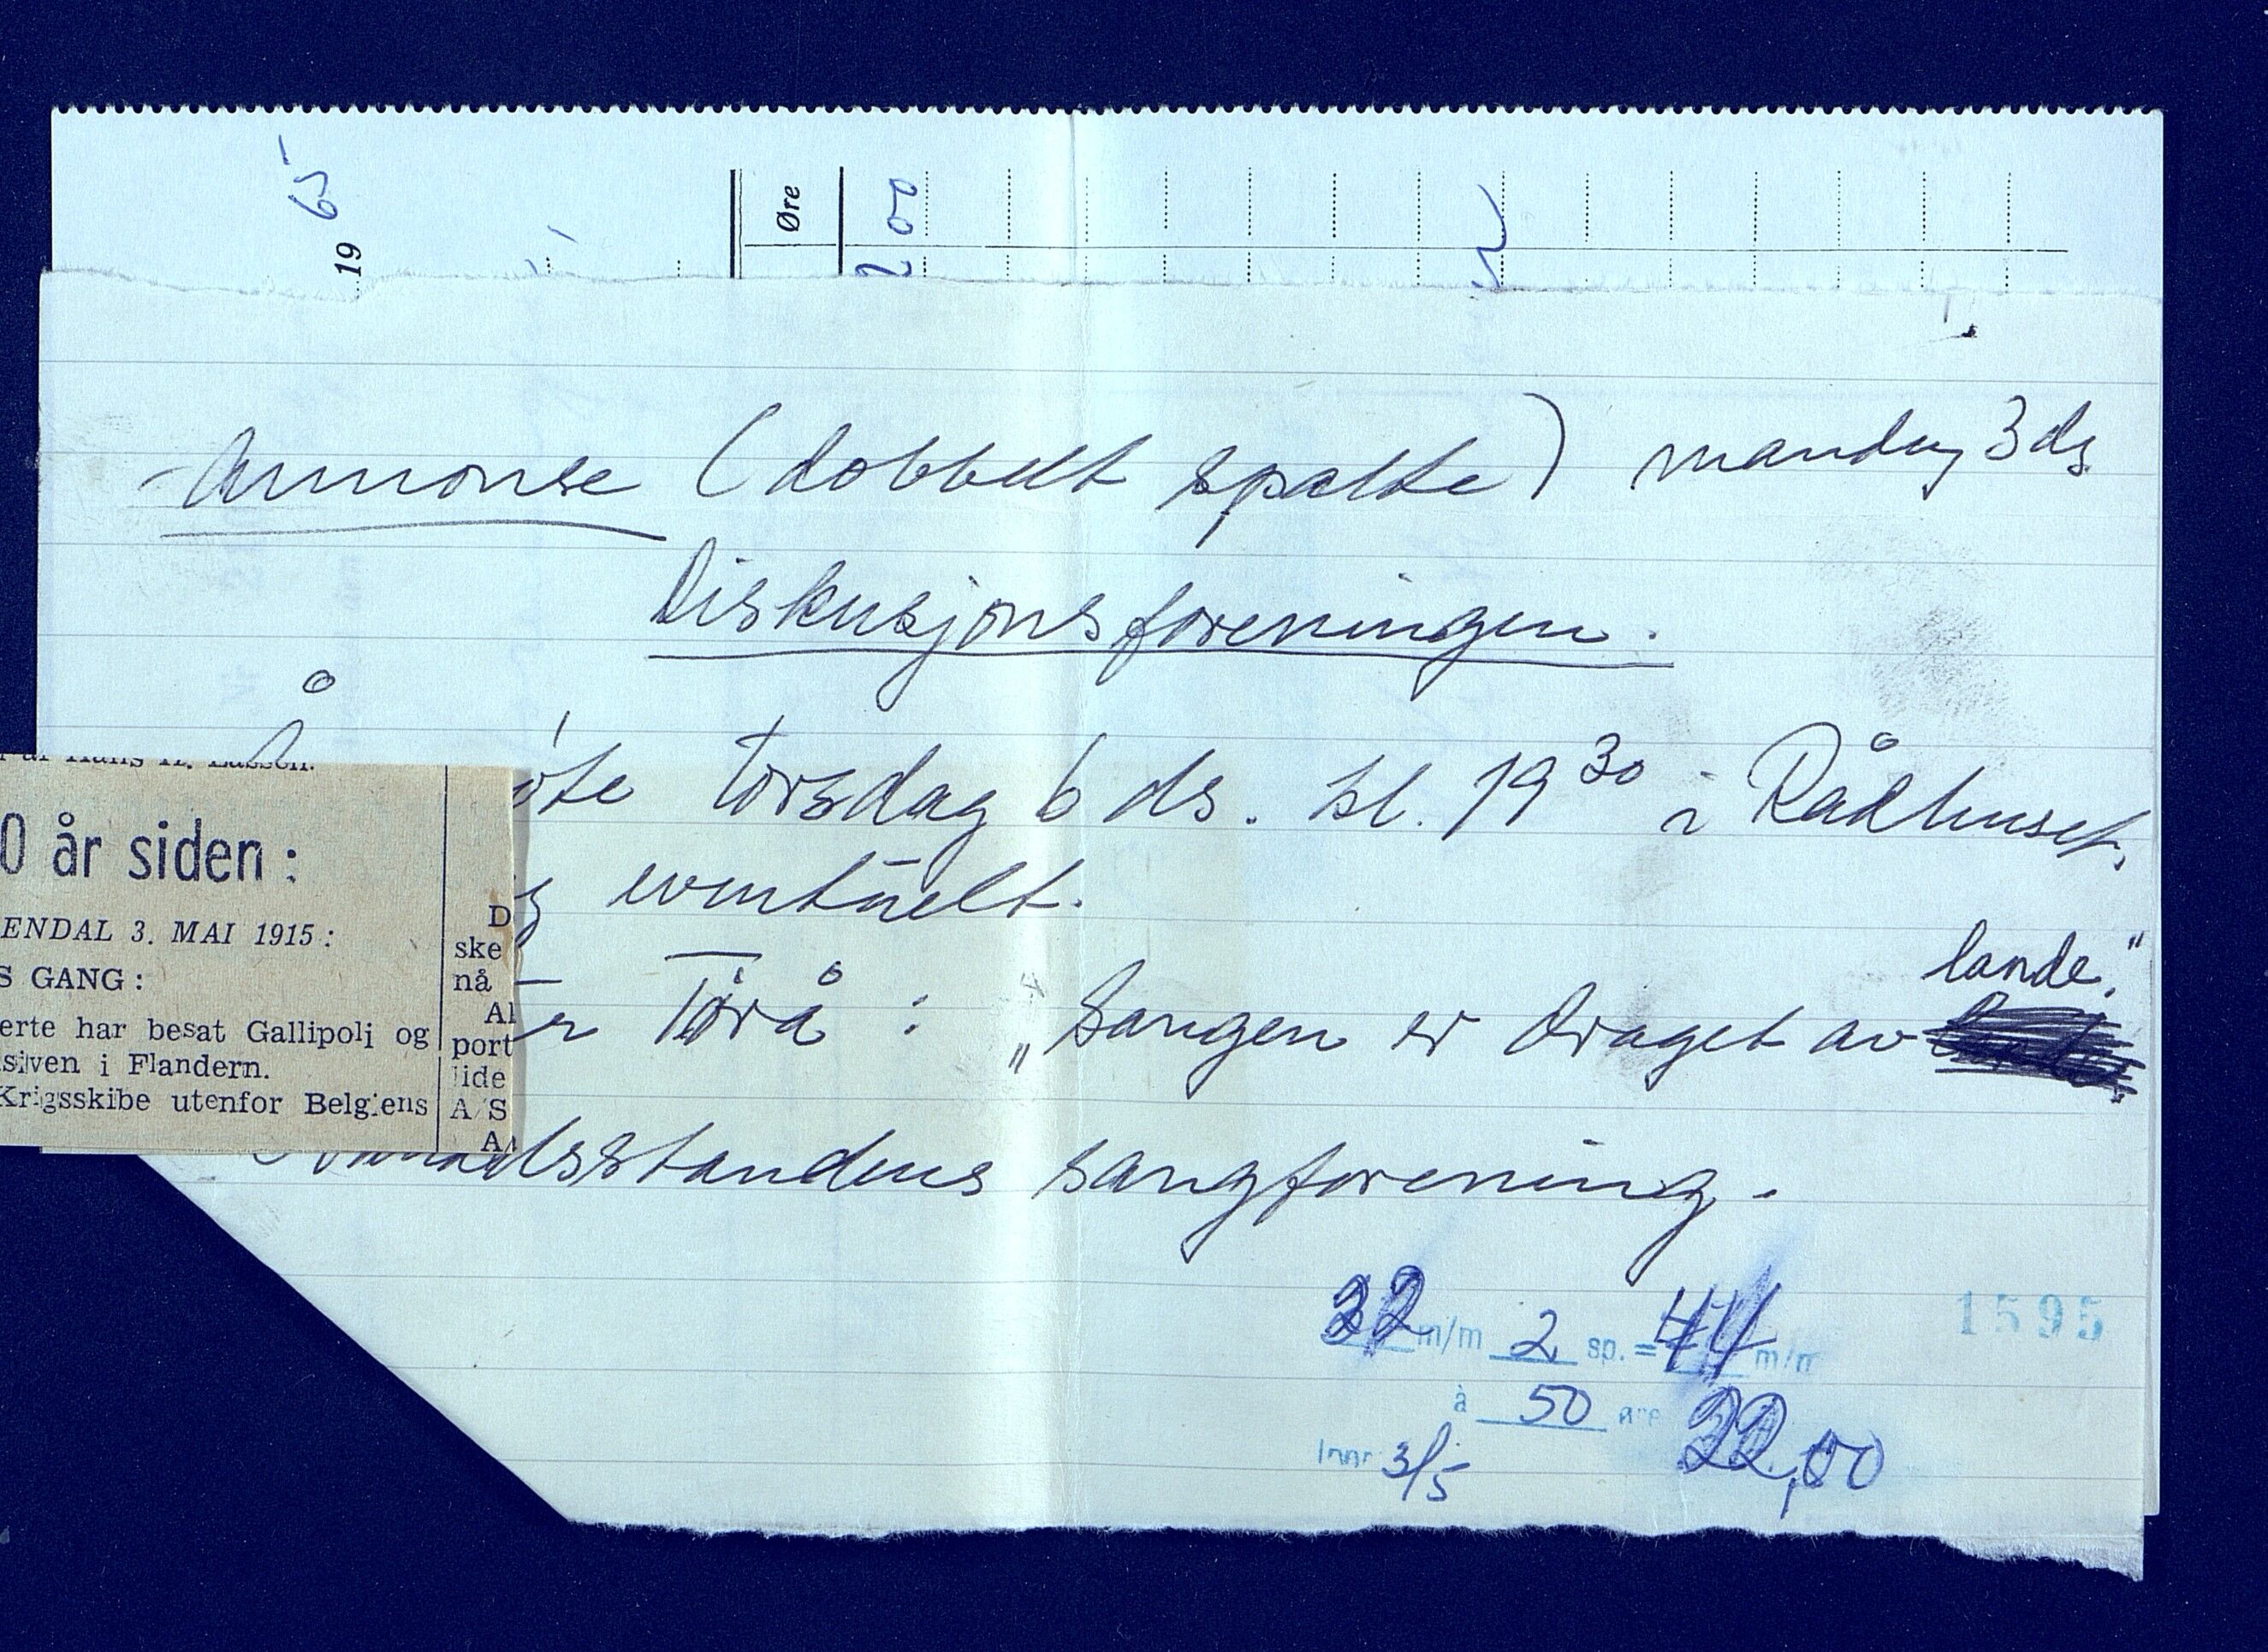 19 65
Øre
00
2
Annonse (dobbelt spalte) mandag 3 ds.
Diskusjonsforeningen.
torsdag 6 ds. kl. 19 30 i Rådhuset.
eventuelt.
Tørå: „Sangen er draget av lande."
sstandens sangforening.
22 m/m 2 sp. = 44 m/m
à 50 øre 22,00
Innr 3/5
1595
0 år siden:
ENDAL 3. MAI 1915:
S GANG:
erte har besat Gallipoli og
siven i Flandern.
Krigsskibe utenfor Belgiens
D
ske
nå
Al
port
lide
A/S
A